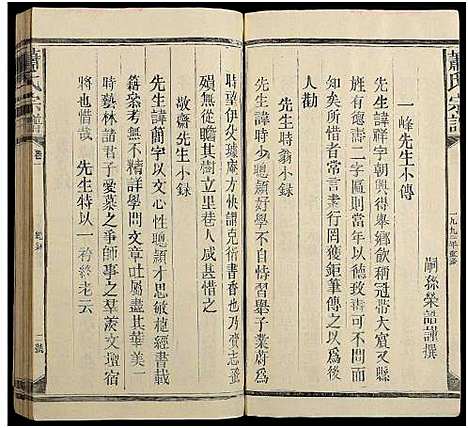 蕭氏宗譜
一九九三年重修
嗣孫榮誥謹撰
一峰先生小傳
先生諱祥字朝興得舉鄉飲稱冠帶大賓又縣
姓有德壽二字匾則當年以德致壽可不問而
知所惜者常言行罔獲鉅筆傳之以為後
人勸
先生時翁小錄
先生諱時少聰穎好學不自恃習舉子業蔚為
時望伊失璩庵方快讀克衍書香也乃賫志歿
殞無從瞻其樹立里巷人咸甚惜之
敬齋先生小錄
先生諱蕳字以文心性聰穎才思敏穩經書載
籍案考無不精詳學問文章吐屬盡其華美一
時藝林諸君子愛慕之爭師事之羣羨文壇宿
將也惜哉 先生特以一衿終老云
蕭氏宗譜
卷一
二號